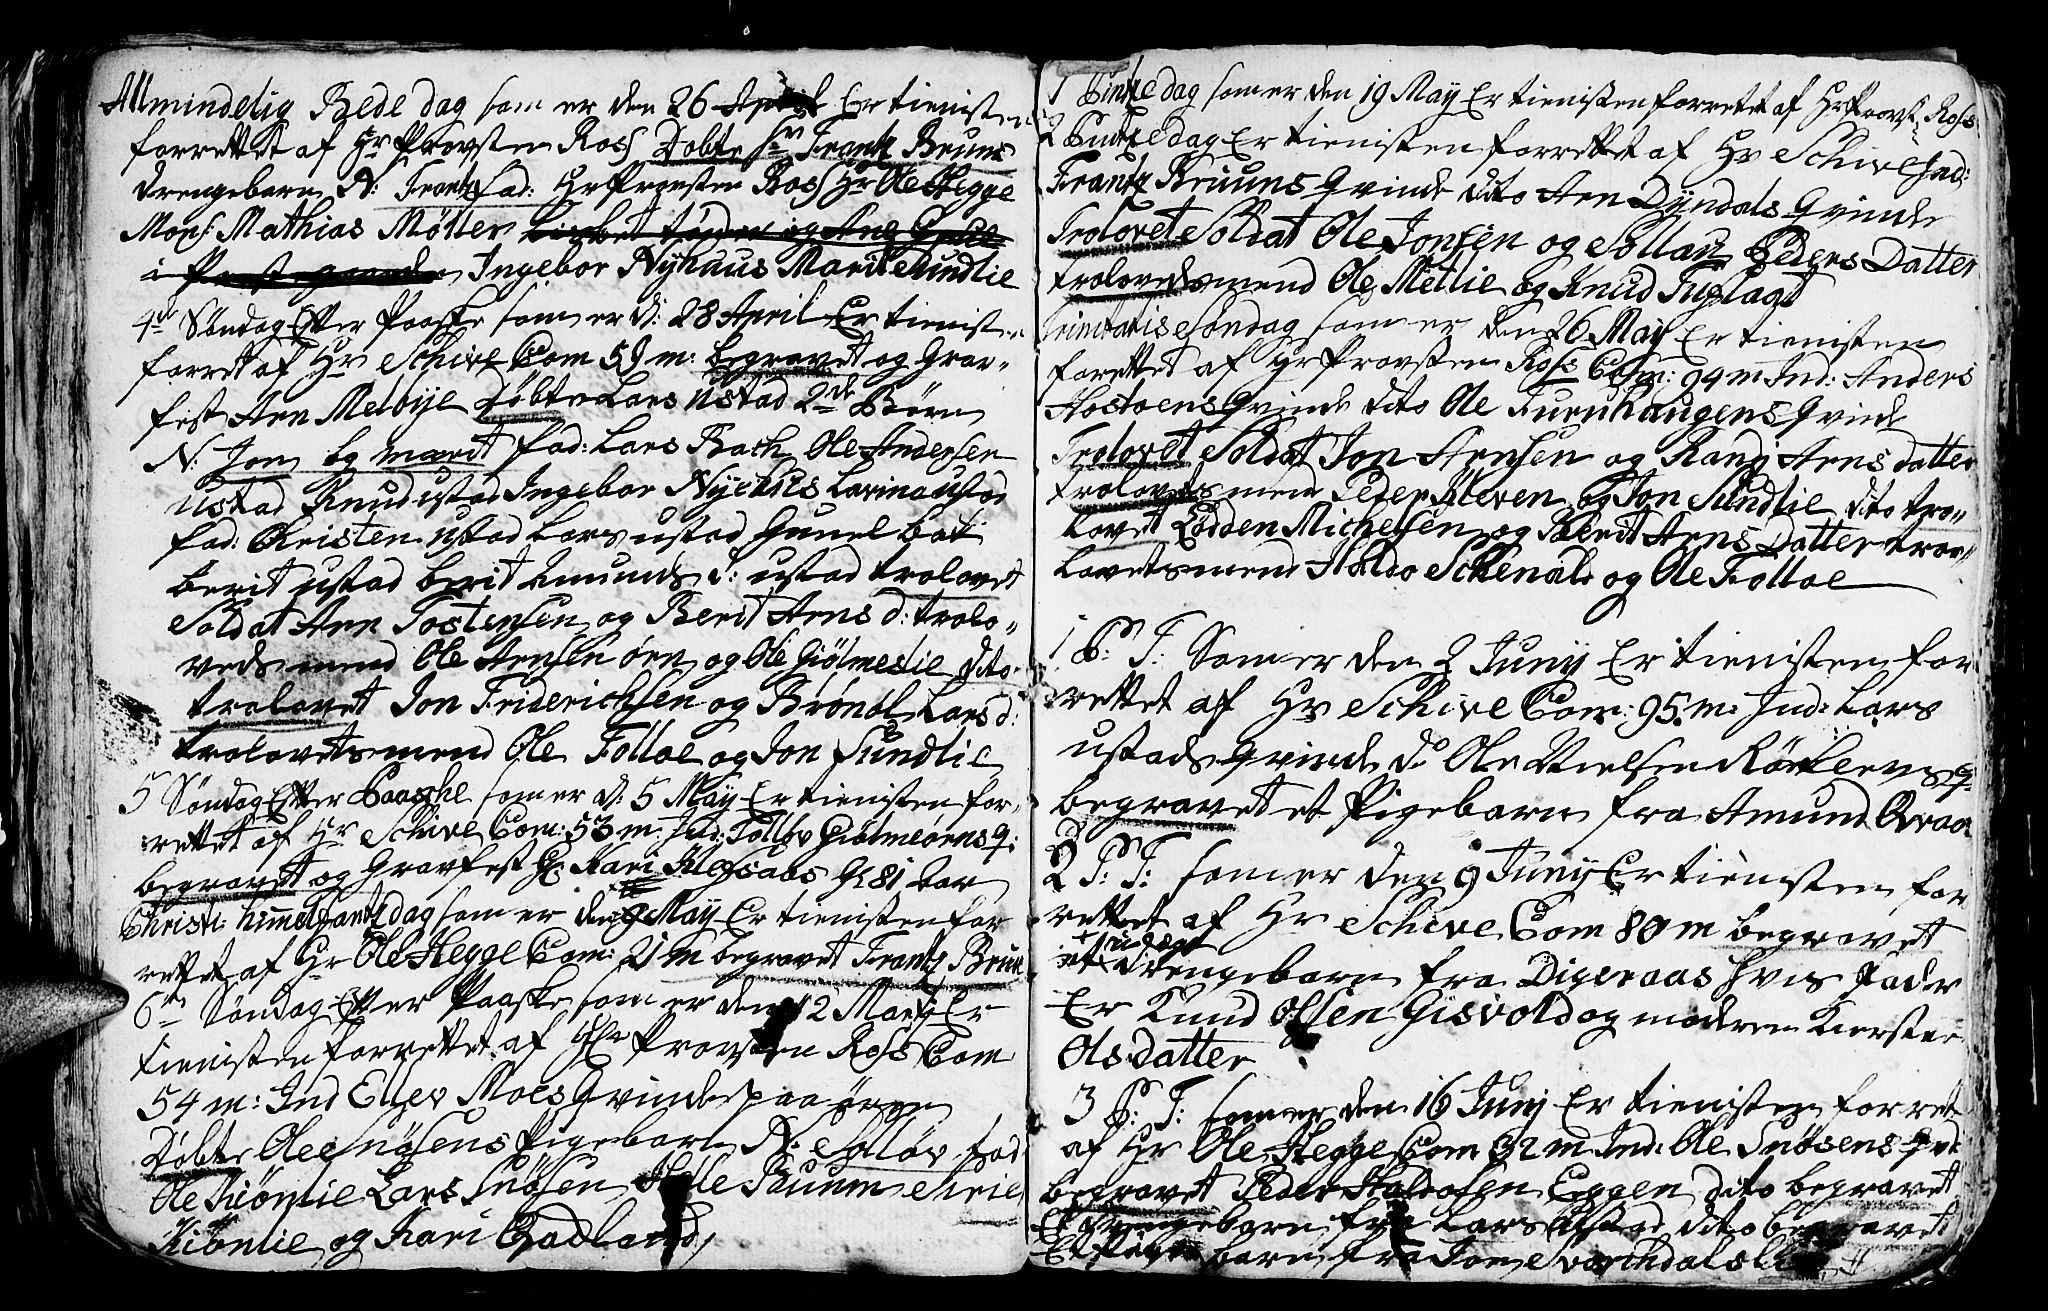 Allmindelig Bede dag som er den 26 April Er tienisten
forrettet af Hr Provsten Ross Døbte Sr Frantz Bruns
drengebarn N: Frantz fad: Hr Provsten Ross Hr Ole Hegge
Mons: Mathias Møller Lisbet og Ane
i Præst gaarden Ingebor Nyhuus Marit Sundlie
4de Søndag Efter Paaske som er d: 28 April Er tienisten
forret af Hr Schive Com 59 m: begravet og Grav-
fest Arn Melbye Døbte Lars Ustad 2de Børn
N: Jon og marit fad: Lars Bach Ole Andersen
ustad Knud ustad Ingebor Nyehus Lavina ustad
fad: Christen ustad Lars ustad Gunel bak
berit ustad berit Amunds d: ustad trolovet
Soldat Arn Tostensen og Berit Arns d: trolo-
vedsmend Ole Arnsen ørn og Ole Giølmeslie dito
trolovet Jon Friderichsen og Brønøl Lars d:
trolovetsmend Ole Folloe og Jon Sundlie
5 Søndag Efter Paaske som er d: 5 May Er tienisten for-
rettet af Hr Schive Com: 53 m: Ind: Tollev Giølmeørns q:
begravet og Gravfest Kari Klefsaas Gl 81 Aar
Christi himelfartz dag som er den 9 May Er tienisten for
rettet af Hr Ole Hegge Com: 21 m begravet Frantz Brun
6te Søndag Efter Paaske som er den 12 Martz Er
tienisten forrettet af Hr Provsten Ross Com
54 m: Ind Ellev Moes Qvinde paa ørene
Døbte Ole Snøsens Pigebarn N: Solløv fad
Ole Kiønlie Lars Snøsen Helle Paunm
Kiønlie og Kari Qvadland
1 Pintzedag som er den 19 May Er tienisten forrettet af Hr Provst: Ross
2 Pintzedag Er tienisten forrettet af Hr Schive Ind:
Frantz Bruuns Qvinde dito Arn Dyndals Qvinde
Trolovet Soldat Ole Jonsen og Sollaug Peders Datter
trolovedsmend Ole Metlie og Knud Fuglaas
Trinitatis Søndag som er den 26 May Er tienisten
forettet af Hr Provsten Ross Com: 94 m Ind: Anders
Hostoens Qvinde dito Ole Furuhaugens Qvinde
Trolovet Soldat Jon Arnsen og Randi Arns datter
trolovets mend Peder Kleven og Jon Sundlie dito tro-
lovet Lodden Michelsen og Berit Arns Datter troe-
lovetsmend Haldo Schenald og Ole Folloe
1 P: T: Som er den 2 Junij Er tienisten for
rettet af Hr Schive Com: 95 m: Ind: Lars
ustads qvinde do Ole Nielsen Rønlens q:
begravet et Pigebarn fra Amund Qvaal
2 P: T: som er den 9 Junij Er tienisten for
rettet af Hr Schive Com 80 m begravet
et uægte
drengebarn fra Digeraas hvis Fader
Er Knud Olsen Gisvold og moderen Kiersten
Olsdatter
3 P: T: som er den 16 Junij Er tienisten forret
af Hr Ole Hegge Com 32 m Ind: Ole Snøsens qvi:
begravet Peder Haldosen Eggen dito begravet
Et drengebarn fra Lars Ustad dito begravet
Et barn fra Jon